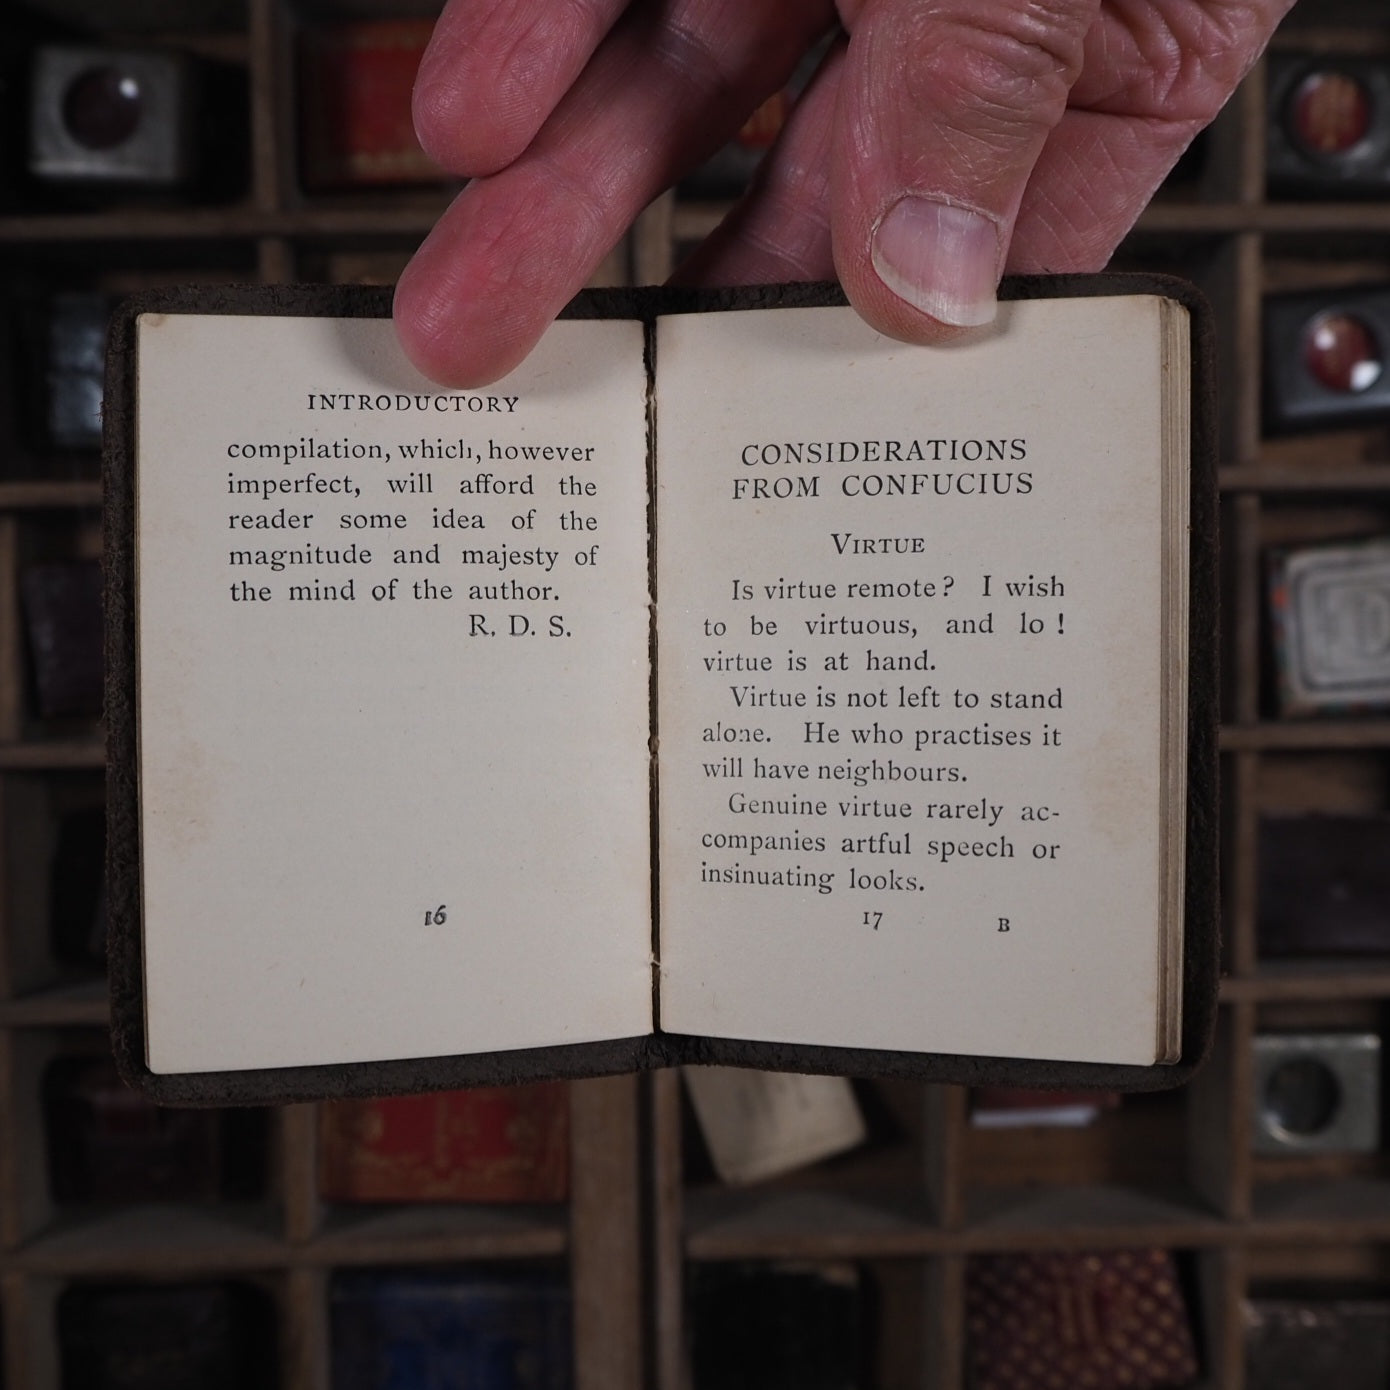 INTRODUCTORY
compilation, which, however
imperfect, will afford the
reader some idea of the
magnitude and majesty of
the mind of the author.
R. D. S.
16
CONSIDERATIONS
FROM CONFUCIUS
VIRTUE
Is virtue remote? I wish
to be virtuous, and lo!
virtue is at hand.
Virtue is not left to stand
alone. He who practises it
will have neighbours.
Genuine virtue rarely ac-
companies artful speech or
insinuating looks.
17 B